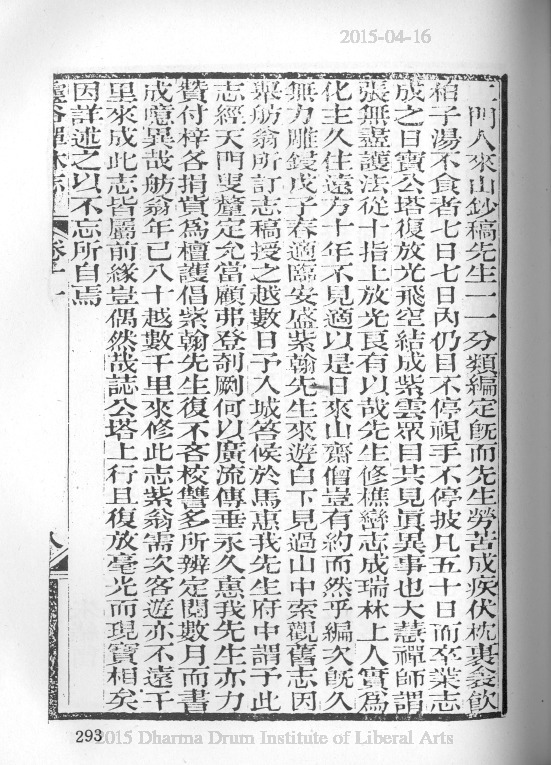 2015-04-16
二門人來山鈔稿先生一一分類編定旣而先生勞苦成疾伏枕裹衾飮
柏子湯不食者七日七日內仍目不停視手不停披凡五十日而卒業志
成之日寶公塔復放光飛空結成紫雲眾目共見眞異事也大慧禪師謂
張無盡護法從十指上放光良有以哉先生修樵巒志成瑞林上人實爲
化主久住遠方十年不見適以是日來山齋僧豈有約而然乎編次旣久
無力雕鋟戊子春適臨安盛紫翰先生來遊白下見過山中索觀舊志因
聚舫翁所訂志稿授之越數日予入城答候於馬惠我先生府中謂予此
志經天門叟釐定允當顧弗登剞劂何以廣流傳垂永久惠我先生亦力
贊付梓各捐貲爲檀護倡紫翰先生復不吝校讐多所辨定閱數月而書
成噫異哉舫翁年已八十越數千里來修此志紫翁需次客遊亦不遠千
里來成此志皆屬前緣豈偶然哉誌公塔上行且復放毫光而現寶相矣
因詳述之以不忘所自焉
靈谷禪林志 卷十一 八
293
2015 Dharma Drum Institute of Liberal Arts